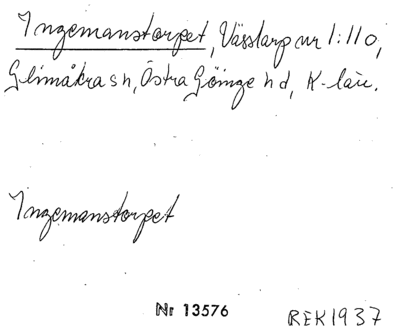 Ingemanstorpet, Vässlarp nr 1:110,
Glimåkra sn, Östra Göinge hd, K-län.
Ingemanstorpet
Nr 13576 REK 1937